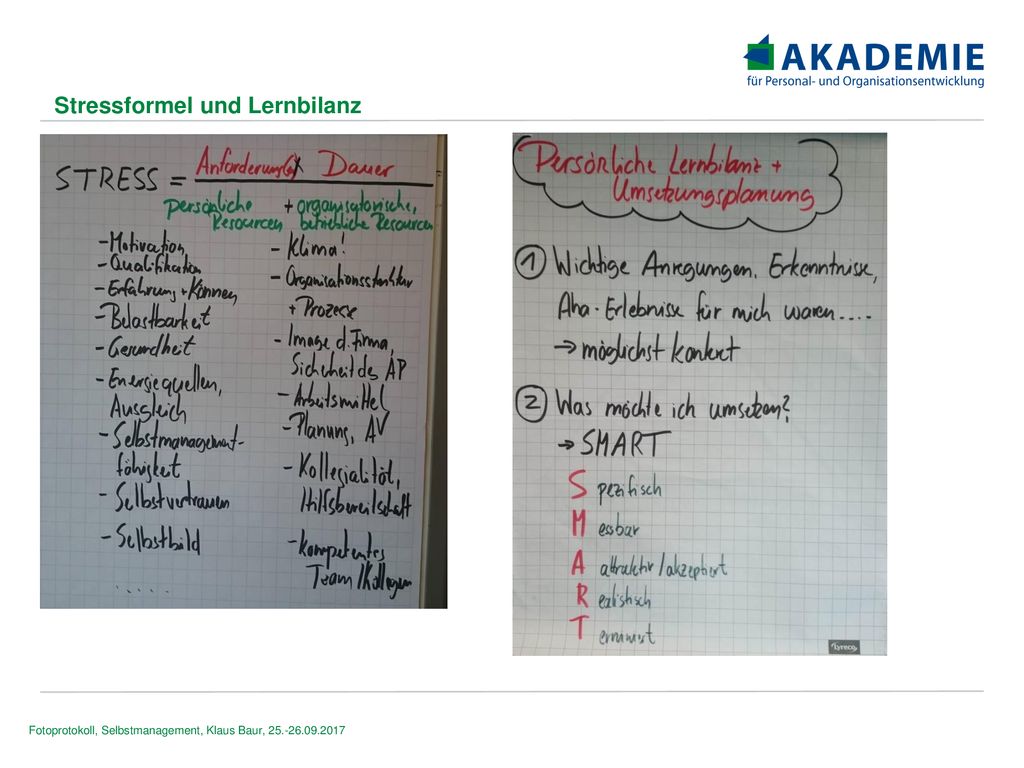 AKADEMIE
für Personal- und Organisationsentwicklung
Stressformel und Lernbilanz
STRESS = Anforderung(en) x Dauer
persönliche
Ressourcen
+ organisatorische,
betriebliche Ressourcen
- Motivation
- Qualifikation
- Erfahrung + Können
- Belastbarkeit
- Gesundheit
- Energiequellen,
Ausgleich
- Selbstmanagement-
fähigkeit
- Selbstvertrauen
- Selbstbild
.....
- Klima!
- Organisationsstruktur
+ Prozesse
- Image d. Firma,
Sicherheit des AP
- Arbeitsmittel
- Planung, AV
- Kollegialität,
Hilfsbereitschaft
- kompetentes
Team / Kollegen
Persönliche Lernbilanz +
Umsetzungsplanung
1 Wichtige Anregungen, Erkenntnisse,
Aha-Erlebnisse für mich waren....
→ möglichst konkret
2 Was möchte ich umsetzen?
→ SMART
S pezifisch
M essbar
A attraktiv / akzeptiert
R ealistisch
T erminiert
Lyreco
Fotoprotokoll, Selbstmanagement, Klaus Baur, 25.-26.09.2017